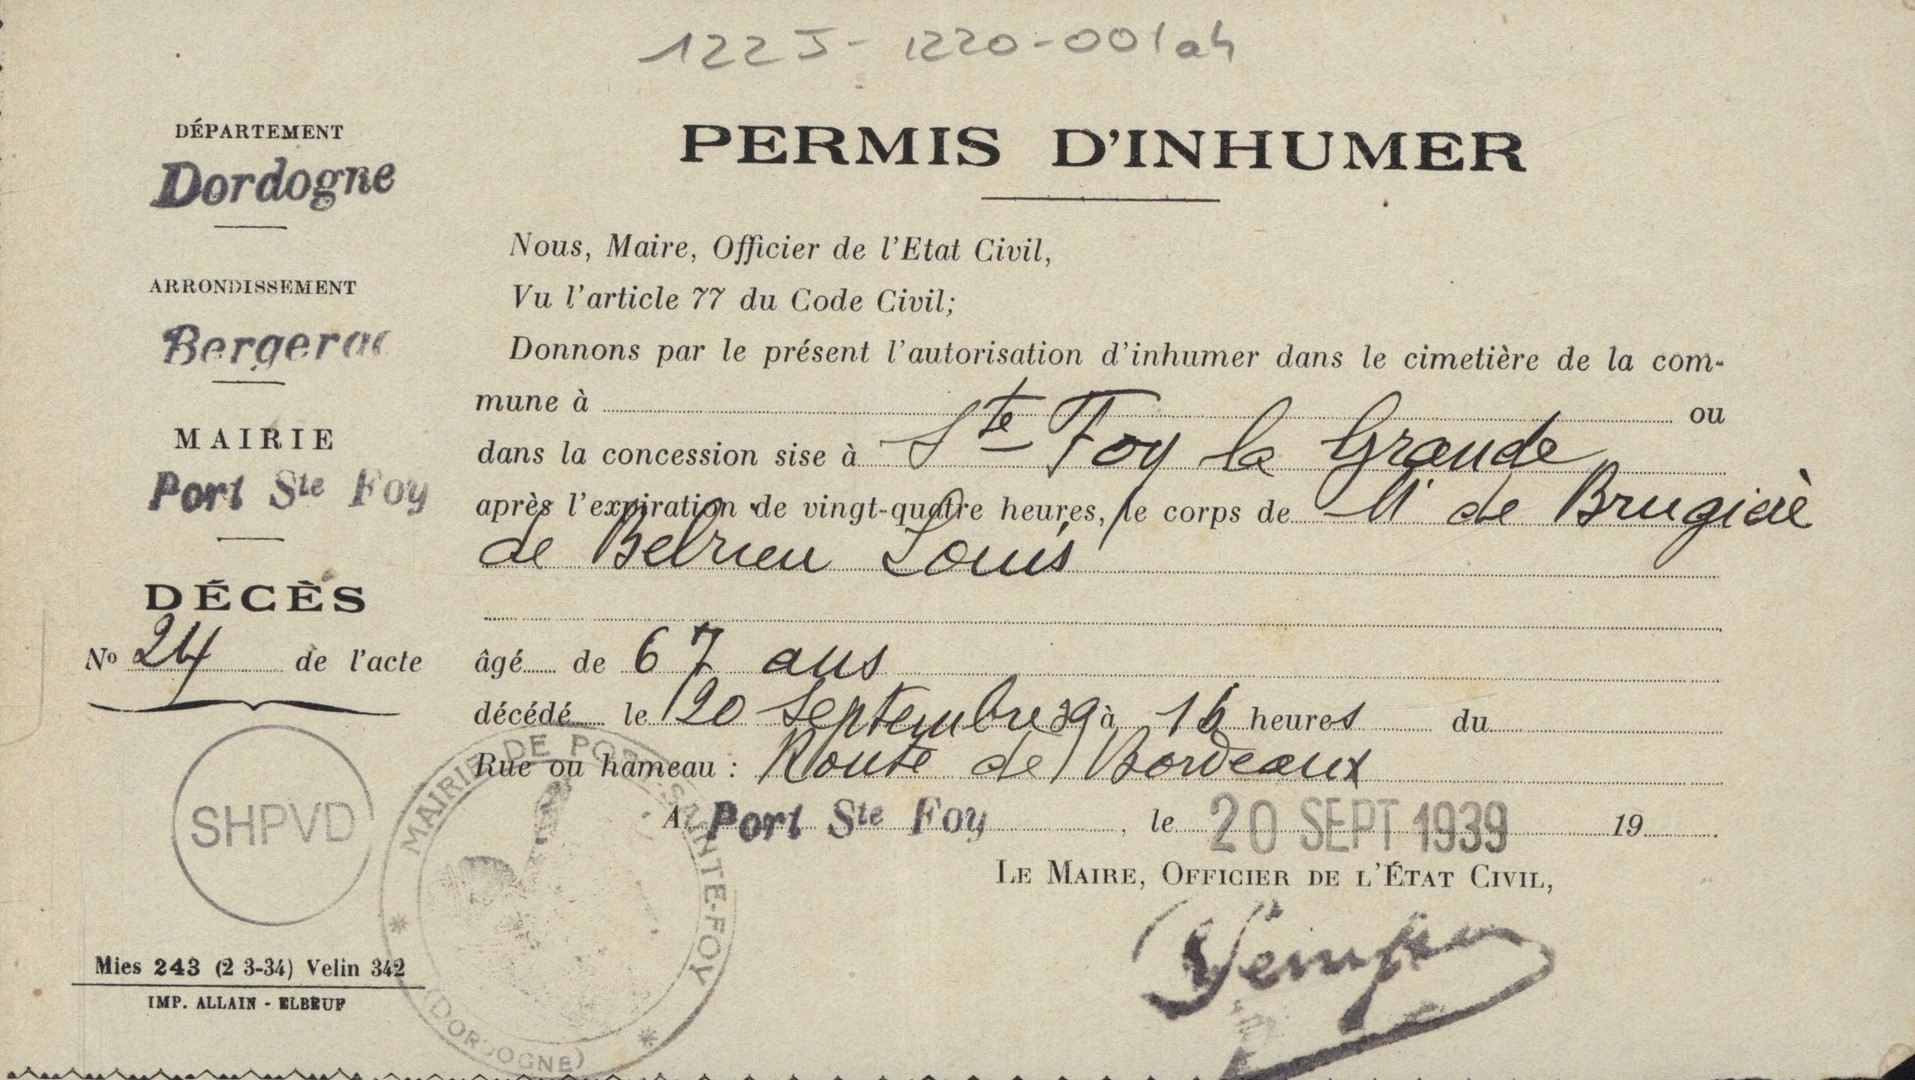 122J-1220-001ah
DÉPARTEMENT
Dordogne
ARRONDISSEMENT
Bergerac
MAIRIE
Port Ste Foy
DÉCÈS
No 24 de l'acte
SHPVD
Mies 243 (2 3-34) Velin 342
IMP. ALLAIN - ELBEUF
PERMIS D'INHUMER
Nous, Maire, Officier de l'Etat Civil,
Vu l'article 77 du Code Civil;
Donnons par le présent l'autorisation d'inhumer dans le cimetière de la com-
mune à ou
dans la concession sise à Ste Foy la Grande
après l'expiration de vingt-quatre heures, le corps de Mr de Brugière
de Belrieu Louis
âgé de 67 ans
décédé le 20 Septembre 39 à 16 heures du
Rue ou hameau : Route de Bordeaux
A Port Ste Foy, le 20 SEPT 1939 19
LE MAIRE, OFFICIER DE L'ÉTAT CIVIL,
MAIRIE DE PORT-SAINTE-FOY
(DORDOGNE)